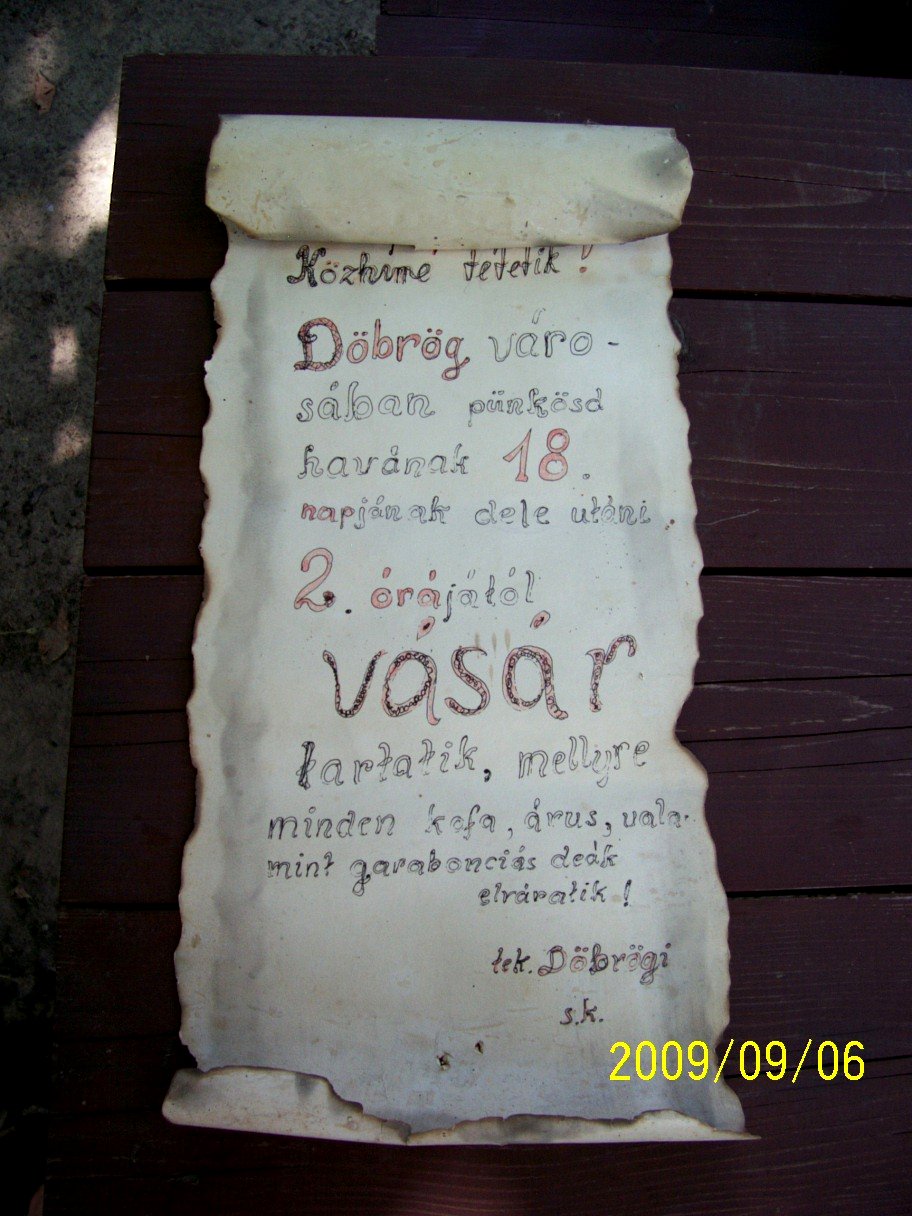 Közhírré tétetik!
Döbrög váro-
sában pünkösd
havának 18.
napjának dele utáni
2. órájától
vásár
tartatik, mellyre
minden kofa, árus, vala-
mint garabonciás deák
elváratik!
tek. Döbrögi
s.k.
2009/09/06